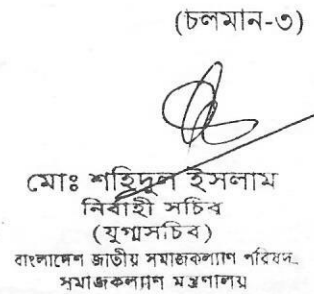 (চলমান-৩)
মোঃ শহিদুল ইসলাম
নির্বাহী সচিব
(যুগ্মসচিব)
বাংলাদেশ জাতীয় সমাজকল্যাণ পরিষদ
সমাজকল্যাণ মন্ত্রণালয়